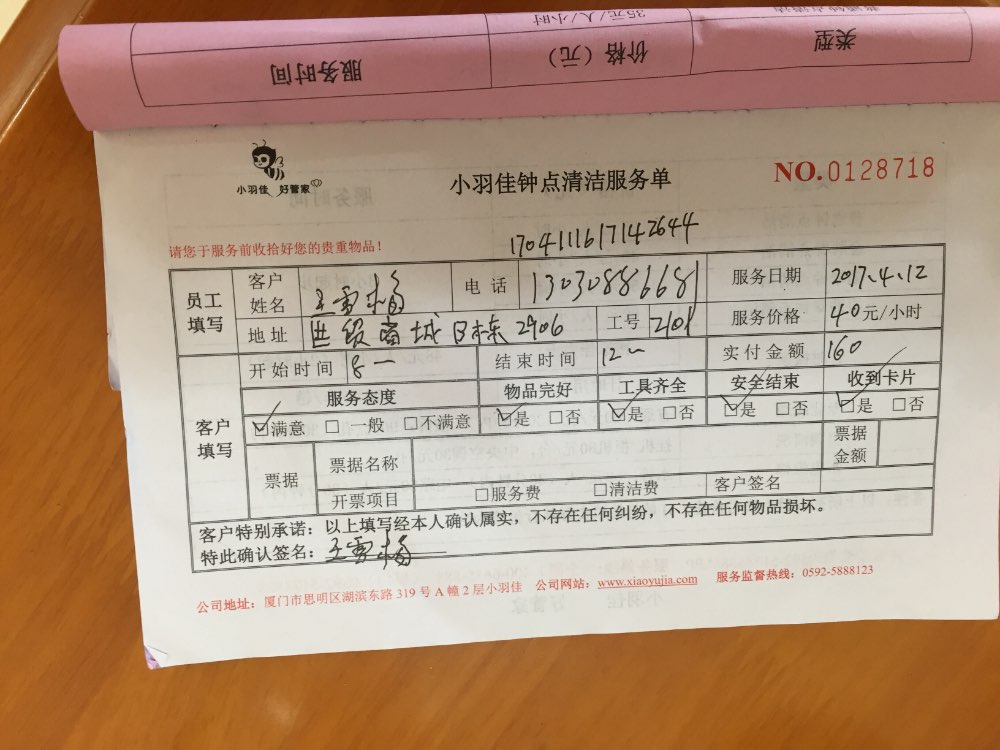 35元/人/小时
服务时间 价格（元） 类型
小羽佳 好管家
小羽佳钟点清洁服务单
NO.0128718
1704111617142644
请您于服务前收拾好您的贵重物品！
员工填写 客户姓名 王雪梅 电话 13030886681 服务日期 2017.4.12
地址 世贸商城B栋2906 工号 2101 服务价格 40元/小时
开始时间 8— 结束时间 12— 实付金额 160
客户填写 服务态度 物品完好 工具齐全 安全结束 收到卡片
☑满意 □一般 □不满意 ☑是 □否 ☑是 □否 ☑是 □否 ☑是 □否
票据 票据名称 票据金额
开票项目 □服务费 □清洁费 客户签名
客户特别承诺：以上填写经本人确认属实，不存在任何纠纷，不存在任何物品损坏。
特此确认签名：王雪梅
公司地址：厦门市思明区湖滨东路319号A幢2层小羽佳 公司网站：www.xiaoyujia.com 服务监督热线：0592-5888123